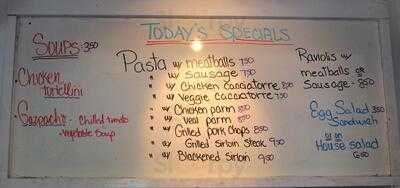 TODAY'S SPECIALS
SOUPS 3.50
• Chicken
tortellini
• Gazpacho - Chilled tomato
• vegetable soup
Pasta w/ meatballs 7.50
" w/ sausage 7.50
" w/ Chicken cacciatorre 8.50
" w/ Veggie cacciatorre 7.50
" w/ Chicken parm 8.50
" w/ veal parm 8.50
" w/ Grilled pork chops 8.50
" w/ Grilled sirloin steak 9.50
" w/ Blackened sirloin 9.50
Raviolis w/
meatballs or
Sausage - 8.50
Egg Salad 3.50
Sandwich
w/
House salad
6.50